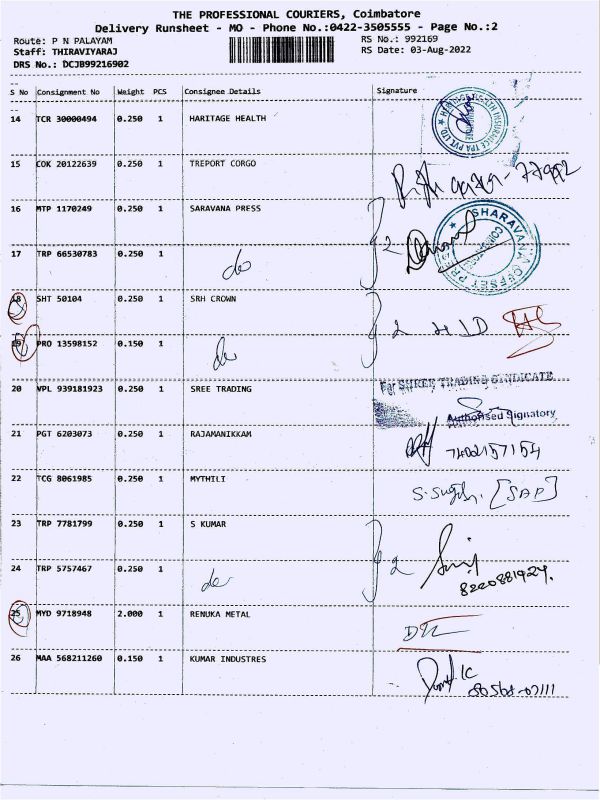 THE PROFESSIONAL COURIERS, Coimbatore
Delivery Runsheet - MO - Phone No.:0422-3505555 - Page No.:2
Route: P N PALAYAM RS No.: 992169
Staff: THIRAVIYARAJ RS Date: 03-Aug-2022
DRS No.: DCJB99216902
S No Consignment No Weight PCS Consignee Details Signature
14 TCR 30000494 0.250 1 HARITAGE HEALTH
15 COK 20122639 0.250 1 TREPORT CORGO
16 MTP 1170249 0.250 1 SARAVANA PRESS
2
SHARAVANA OFFSET
17 TRP 66530783 0.250 1 do
18 SHT 50104 0.250 1 SRH CROWN
2
19 PRO 13598152 0.150 1 do
20 VPL 939181923 0.250 1 SREE TRADING
For SHREE TRADING SINDICATE
Authorised Signatory
21 PGT 6203073 0.250 1 RAJAMANIKKAM
7402157154
22 TCG 8061985 0.250 1 MYTHILI
[SAP]
23 TRP 7781799 0.250 1 S KUMAR
2
24 TRP 5757467 0.250 1 do
25 MYD 9718948 2.000 1 RENUKA METAL
26 MAA 568211260 0.150 1 KUMAR INDUSTRES